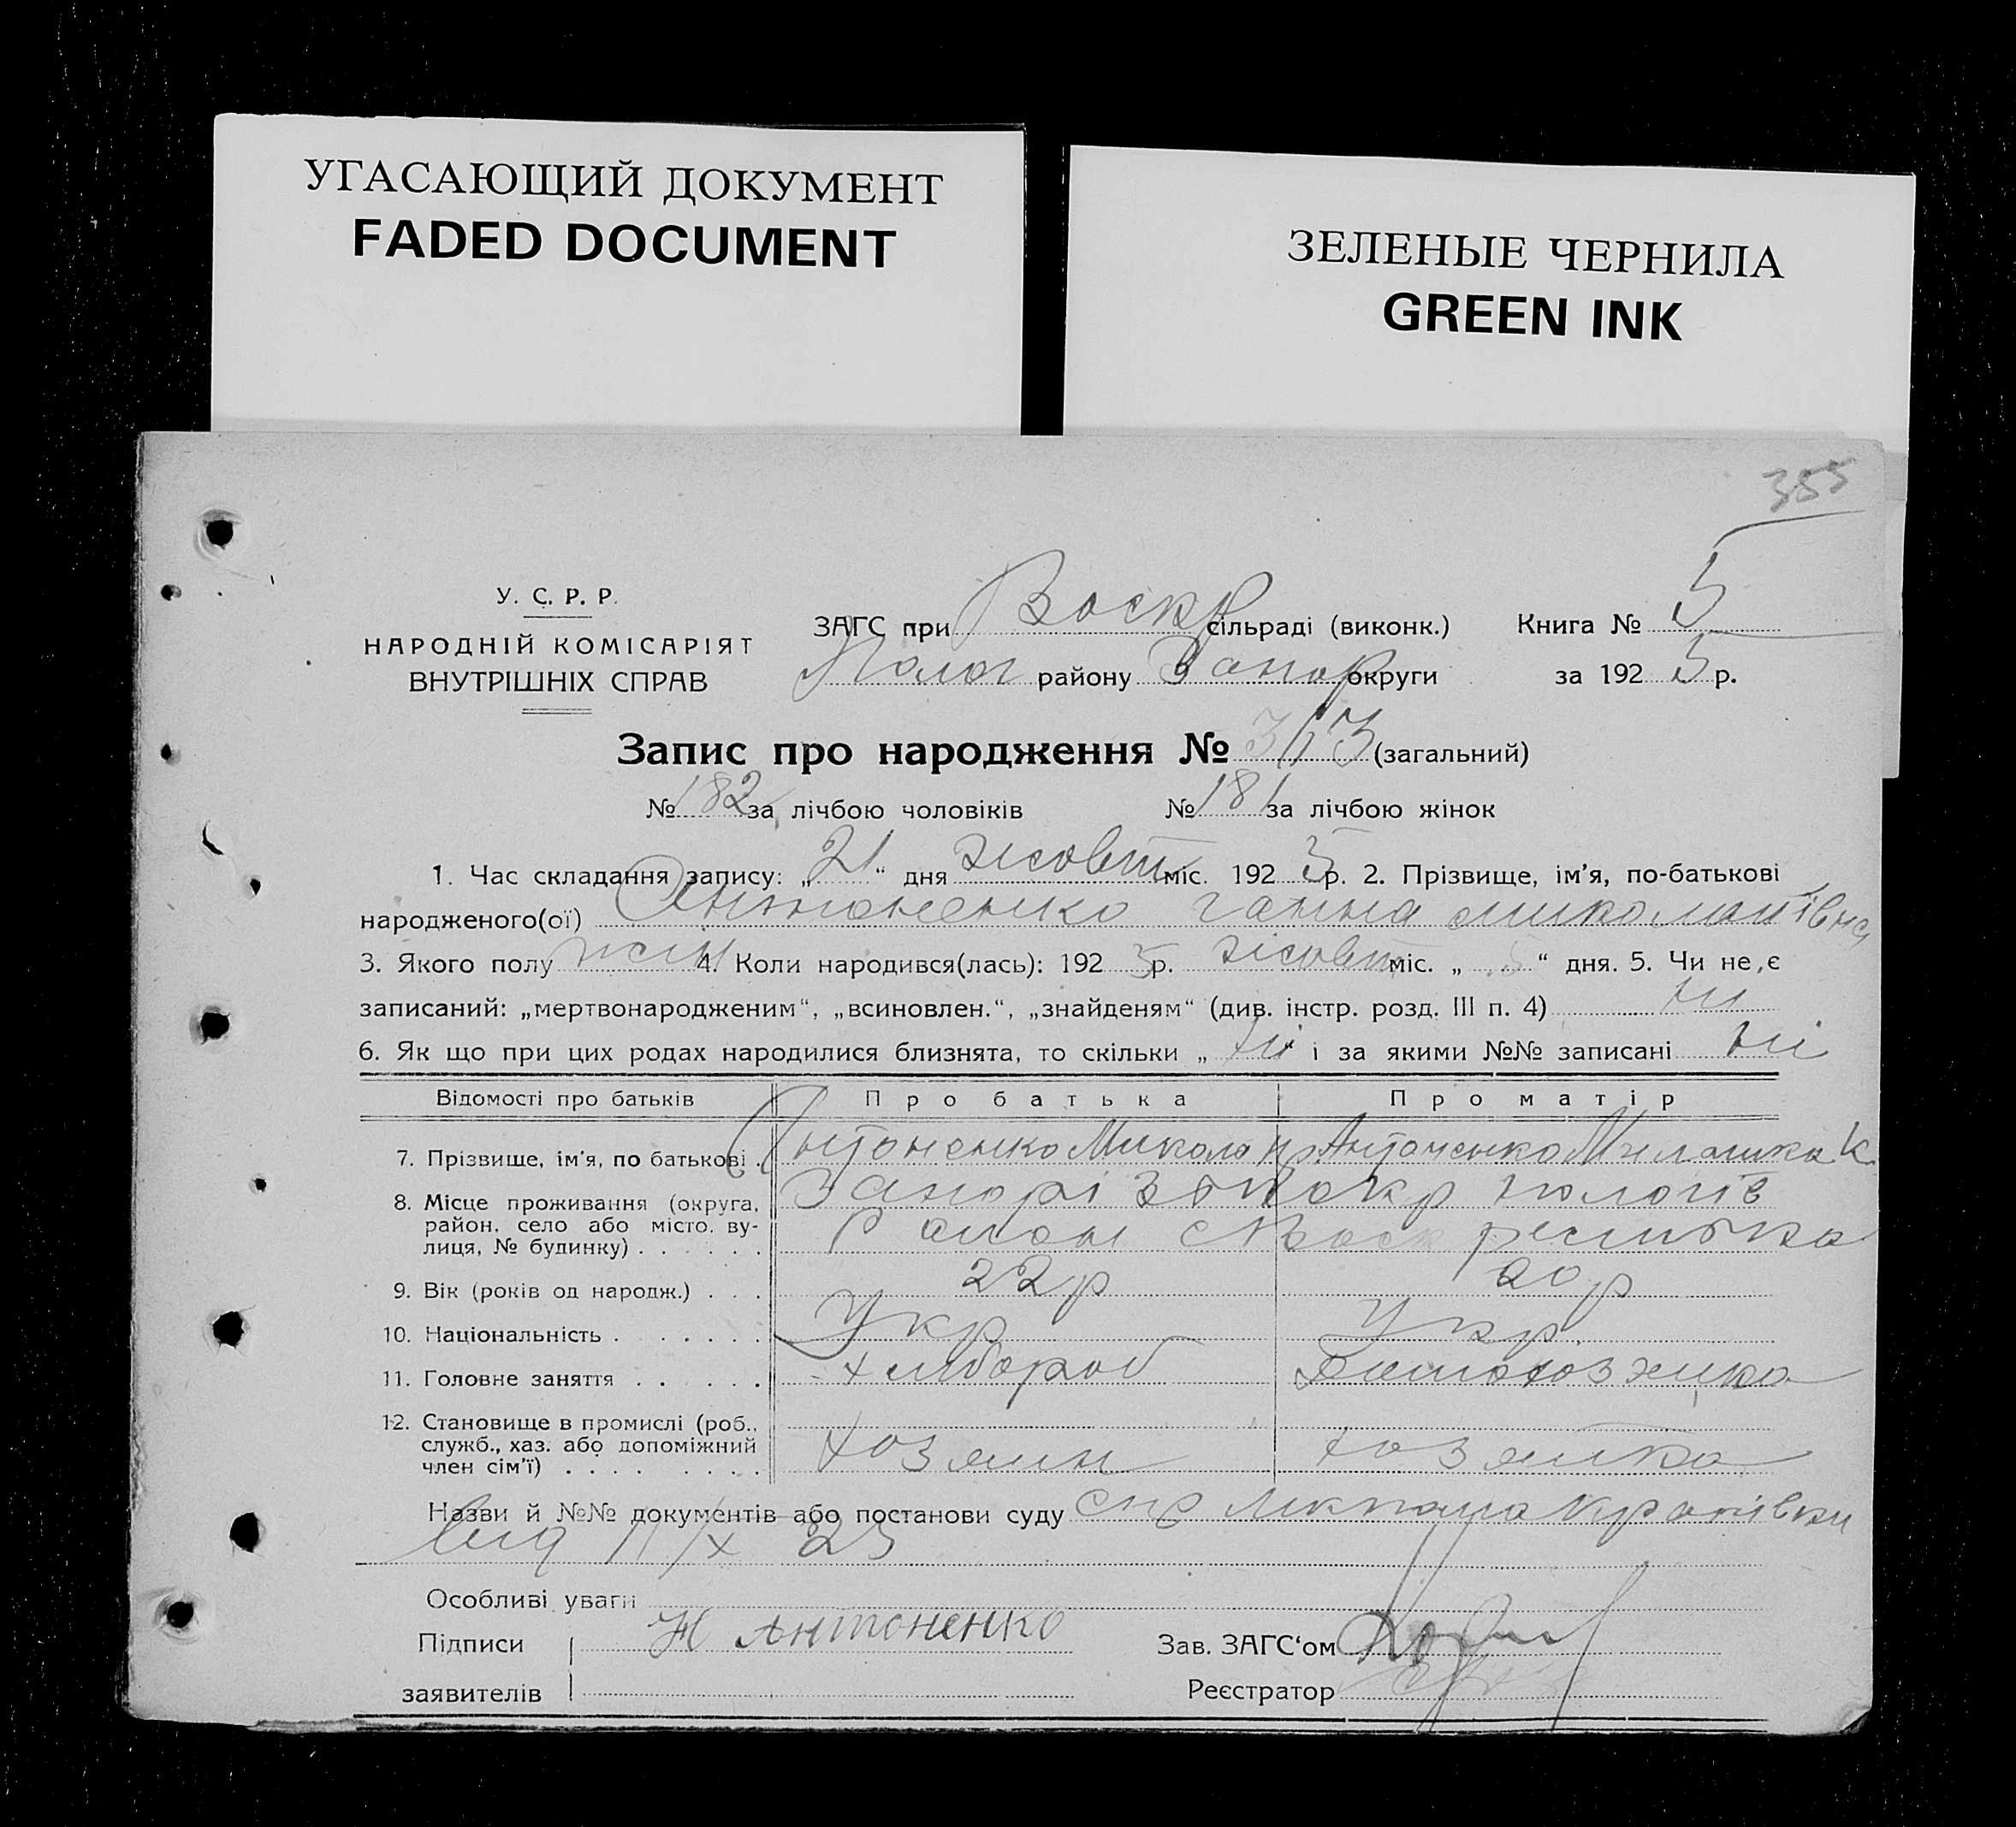 УГАСАЮЩИЙ ДОКУМЕНТ
FADED DOCUMENT
ЗЕЛЕНЫЕ ЧЕРНИЛА
GREEN INK
355
У. С. Р. Р.
НАРОДНІЙ КОМІСАРІЯТ
ВНУТРІШНІХ СПРАВ
ЗАГС при Воскр сільраді (виконк.) Книга № 5
Полог району Запор округи за 192 5 р.
Запис про народження № 363 (загальний)
№ 182 за лічбою чоловіків № 181 за лічбою жінок
1. Час складання запису: „ 21 “ дня жовт міс. 192 5 р. 2. Прізвище, ім’я, по-батькові
народженого(ої) Антоненко Ганна Миколаївна
3. Якого полу жін 4. Коли народився(лась): 192 5 р. жовт міс. „ 5 “ дня. 5. Чи не є
записаний: „мертвонародженим“, „всиновлен.“, „знайденям“ (див. інстр. розд. III п. 4) ни
6. Як що при цих родах народилися близнята, то скільки „ ні і за якими №№ записані ні
Відомості про батьків Про батька Про матір
7. Прізвище, ім’я, по батькові . Антоненко Микола Антоненко К
8. Місце проживання (округа, Запорізька окр пологів
район, село або місто, ву-
лиця, № будинку) . . . . . . Район
9. Вік (років од народж.) . . . 22р 20р
10. Національність . . . . . . . Укр Укр.
11. Головне заняття . . . . . . хлібороб
12. Становище в промислі (роб.,
служб., хаз. або допоміжний
член сім’ї) . . . . . . . . хозяин хозяйка
Назви й №№ документів або постанови суду
від 11/X 25
Особливі уваги
Підписи Н Антоненко Зав. ЗАГС‘ом
заявителів Реєстратор